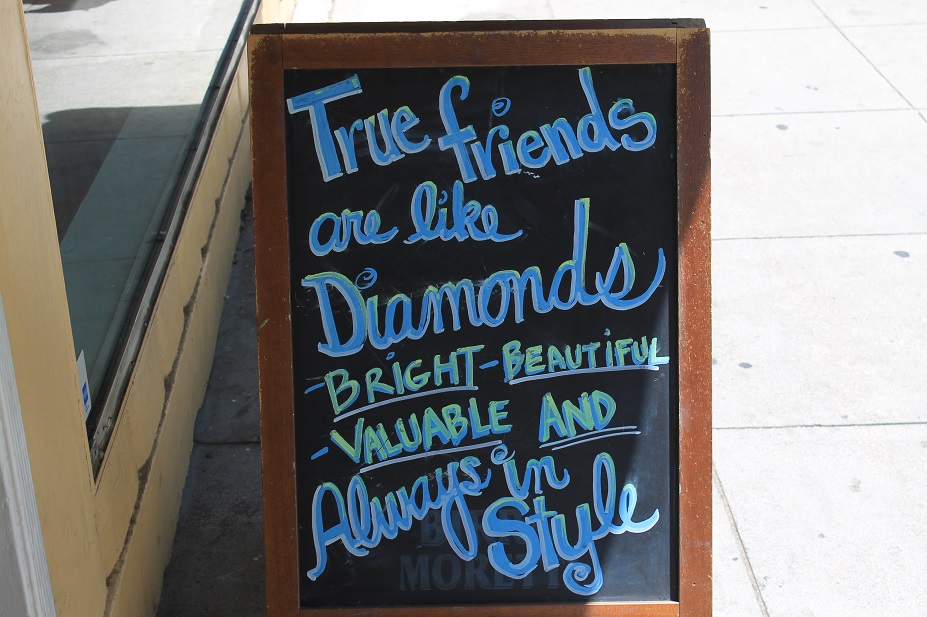 True friends
are like
Diamonds
-BRIGHT-BEAUTIFUL
-VALUABLE AND
Always in
Style